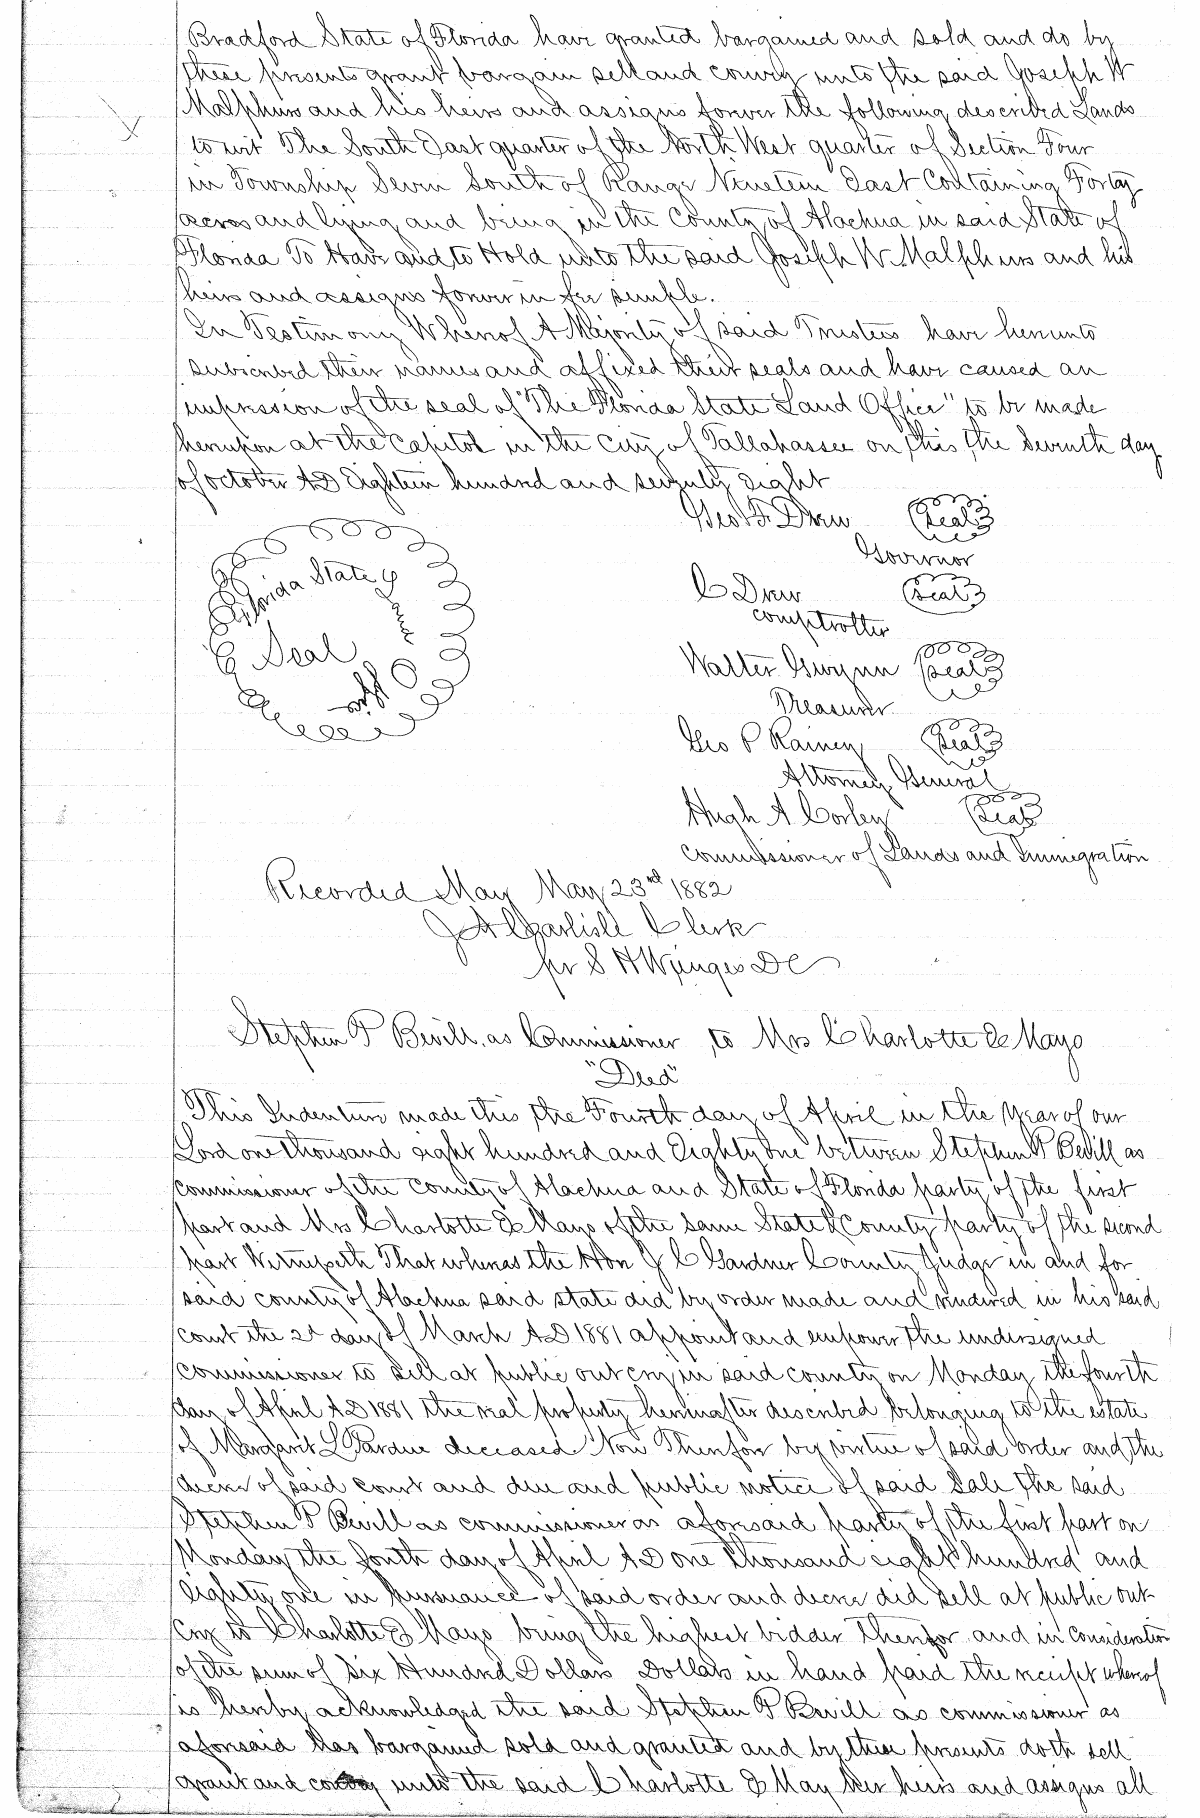 Bradford State of Florida have granted bargained and sold and do by
these presents grant bargain sell and convey unto the said Joseph W
Malphurs and his heirs and assigns forever the following described Lands
to wit The South East quarter of the North West quarter of Section Four
in Township Seven South of Range Nineteen East Containing Forty
acres and lying and being in the County of Alachua in said State of
Florida To Have and to Hold unto the said Joseph W Malphurs and his
heirs and assigns forever in fee simple.
In Testimony Whereof A Majority of said Trustees have hereunto
subscribed their names and affixed their seals and have caused an
impression of the seal of "The Florida State Land Office" to be made
hereupon at the Capitol in the City of Tallahassee on this the Seventh day
of October AD Eighteen hundred and seventy Eight
Geo F. Drew (Seal)
Governor
C Drew (Seal)
Comptroller
Walter Gwynn (Seal)
Treasurer
Geo P Raney (Seal)
Attorney General
Hugh A Corley (Seal)
Commissioner of Lands and Immegration
Florida State
Land
Office
Seal
Recorded May May 23rd 1882
J A Carlisle Clerk
pr S H Wienges DC
Stephen P Bevill as Commissioner to Mrs Charlotte E Mayo
"Deed"
This Indenture made this the Fourth day of April in the Year of our
Lord one thousand eight hundred and Eighty One between Stephen P Bevill as
commissioner of the County of Alachua and State of Florida party of the first
part and Mrs Charlotte E Mayo of the same State & County party of the second
part Witnesseth That whereas the Hon J C Gardner County Judge in and for
said county of Alachua said state did by order made and rendered in his said
court the 2d day of March AD 1881 appoint and empower the undersigned
commissioner to sell at public out cry in said county on Monday the fourth
day of April AD 1881 the real property hereinafter described belonging to the estate
of Margaret L Pardue deceased Now Therefore by virtue of said order and the
decree of said court and due and public notice of said Sale the said
Stephen P Bevill as commissioner as aforesaid party of the first part on
Monday the fourth day of April AD one thousand eight hundred and
eighty one in pursuance of said order and decree did sell at public out-
cry to Charlotte E Mayo being the highest bidder therefor and in consideration
of the sum of Six Hundred Dollars Dollars in hand paid the receipt whereof
is hereby acknowledged the said Stephen P Bevill as commissioner as
aforesaid has bargained sold and granted and by these presents doth sell
grant and convey unto the said Charlotte E May her heirs and assigns all